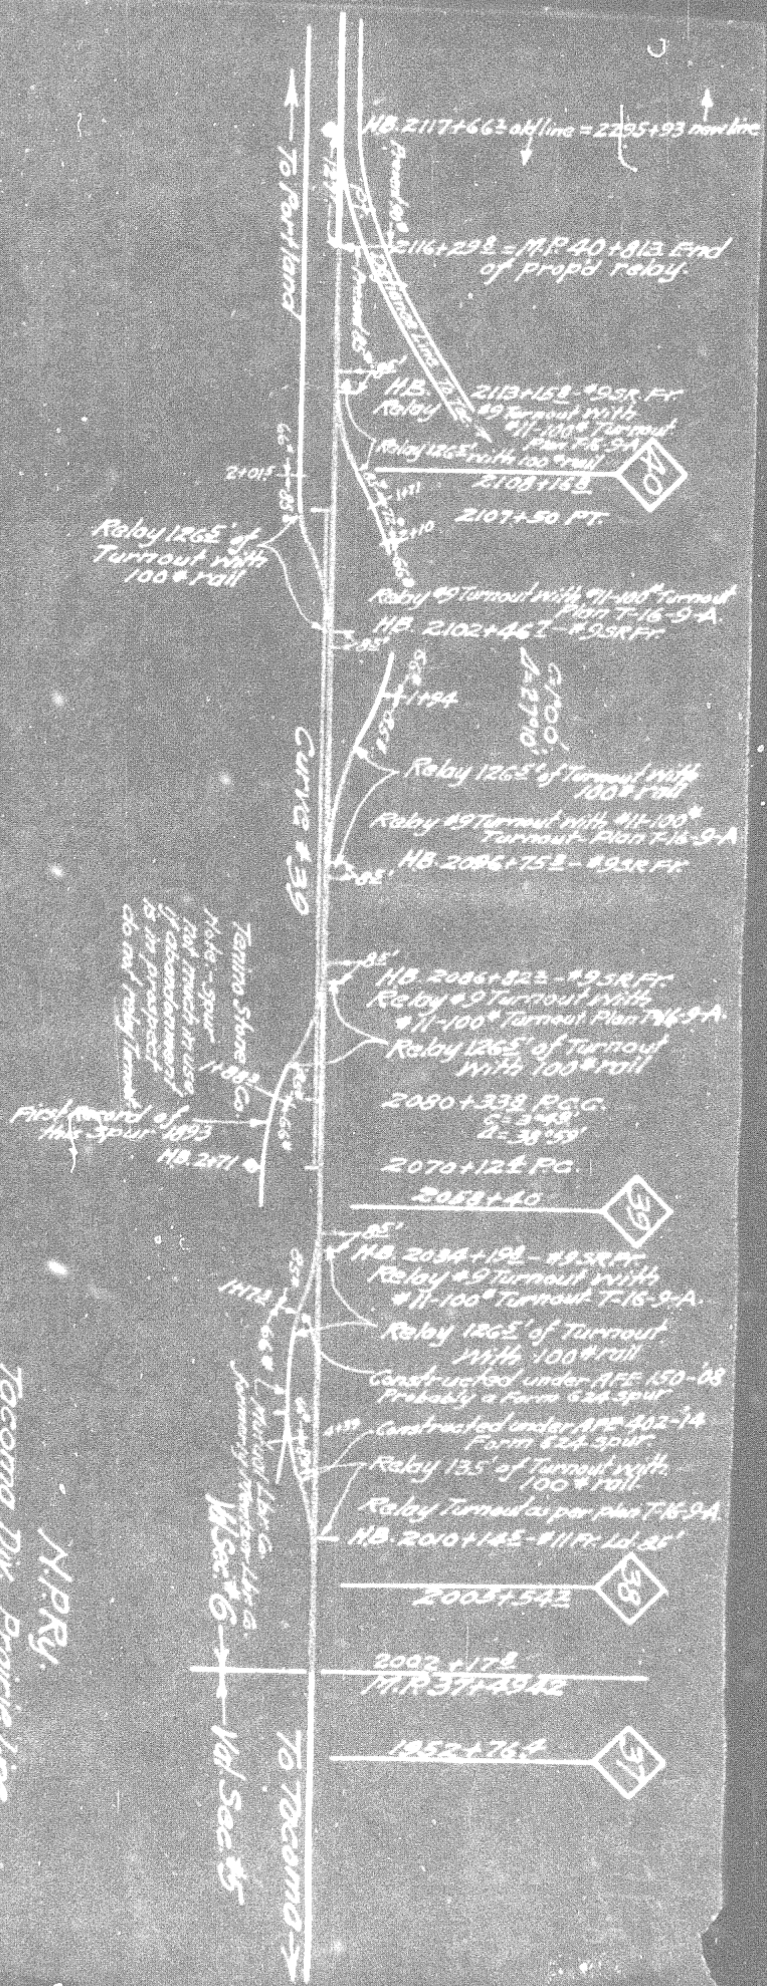 H.B. 2117+66² old line = 2295+93 new line
To Portland
2116+29⁸ = M.P. 40+813 End
of prop'd relay.
85'
H.B. 2113+15⁸ - #9 S.R. Fr.
Relay #9 Turnout with
#11-100# Turnout
Plan T-16-9-A
Relay 126⁵' with 100# rail
40
2108+16⁸
2107+50 P.T.
66#
85#
2+01⁵
1+71
2+10
66#
Relay 126⁵' of
Turnout with
100# rail
Relay #9 Turnout with #11-100# Turnout
Plan T-16-9-A.
H.B. 2102+46⁷ - #9 S.R. Fr.
85'
56#
1+94
85#
C=1°00'
Δ=27°10'
Relay 126⁵' of Turnout with
100# rail
Relay #9 Turnout with #11-100#
Turnout - Plan T-16-9-A
H.B. 2096+75⁸ - #9 S.R. Fr.
85'
Curve #39
85'
H.B. 2086+82³ - #9 S.R. Fr.
Relay #9 Turnout with
#11-100# Turnout Plan T-16-9-A.
Relay 126⁵' of Turnout
with 100# rail
Tenino Stone Co.
Note:- Spur
not much in use
if abandonment
is in prospect
do not relay Turnout
1+88³
66#
First Record of
this Spur 1893
H.B. 2+71
2080+33⁸ P.C.C.
Δ=38°59'
2070+12⁴ P.C.
2058+40
39
85'
H.B. 2034+19⁸ - #9 S.R. Fr.
Relay #9 Turnout with
#11-100# Turnout T-16-9-A.
Relay 126⁵' of Turnout
with 100# rail
85#
66#
Constructed under AFE 150-'08
Probably a Form 624 Spur
4+39
Constructed under AFE 402-'14
Form 624 Spur.
Relay 135' of Turnout with
100# rail
Relay Turnout as per plan T-16-9-A.
H.B. 2010+14⁵ - #11 Fr. Ld. 85'
38
2005+54³
Val Sec. #6
Val Sec. #5
2002+17⁸
M.P. 37+4942
37
1952+76.4
To Tacoma
N.P.Ry.
Tacoma Div. Prairie Line